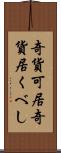 奇貨可居奇
貨居くべし